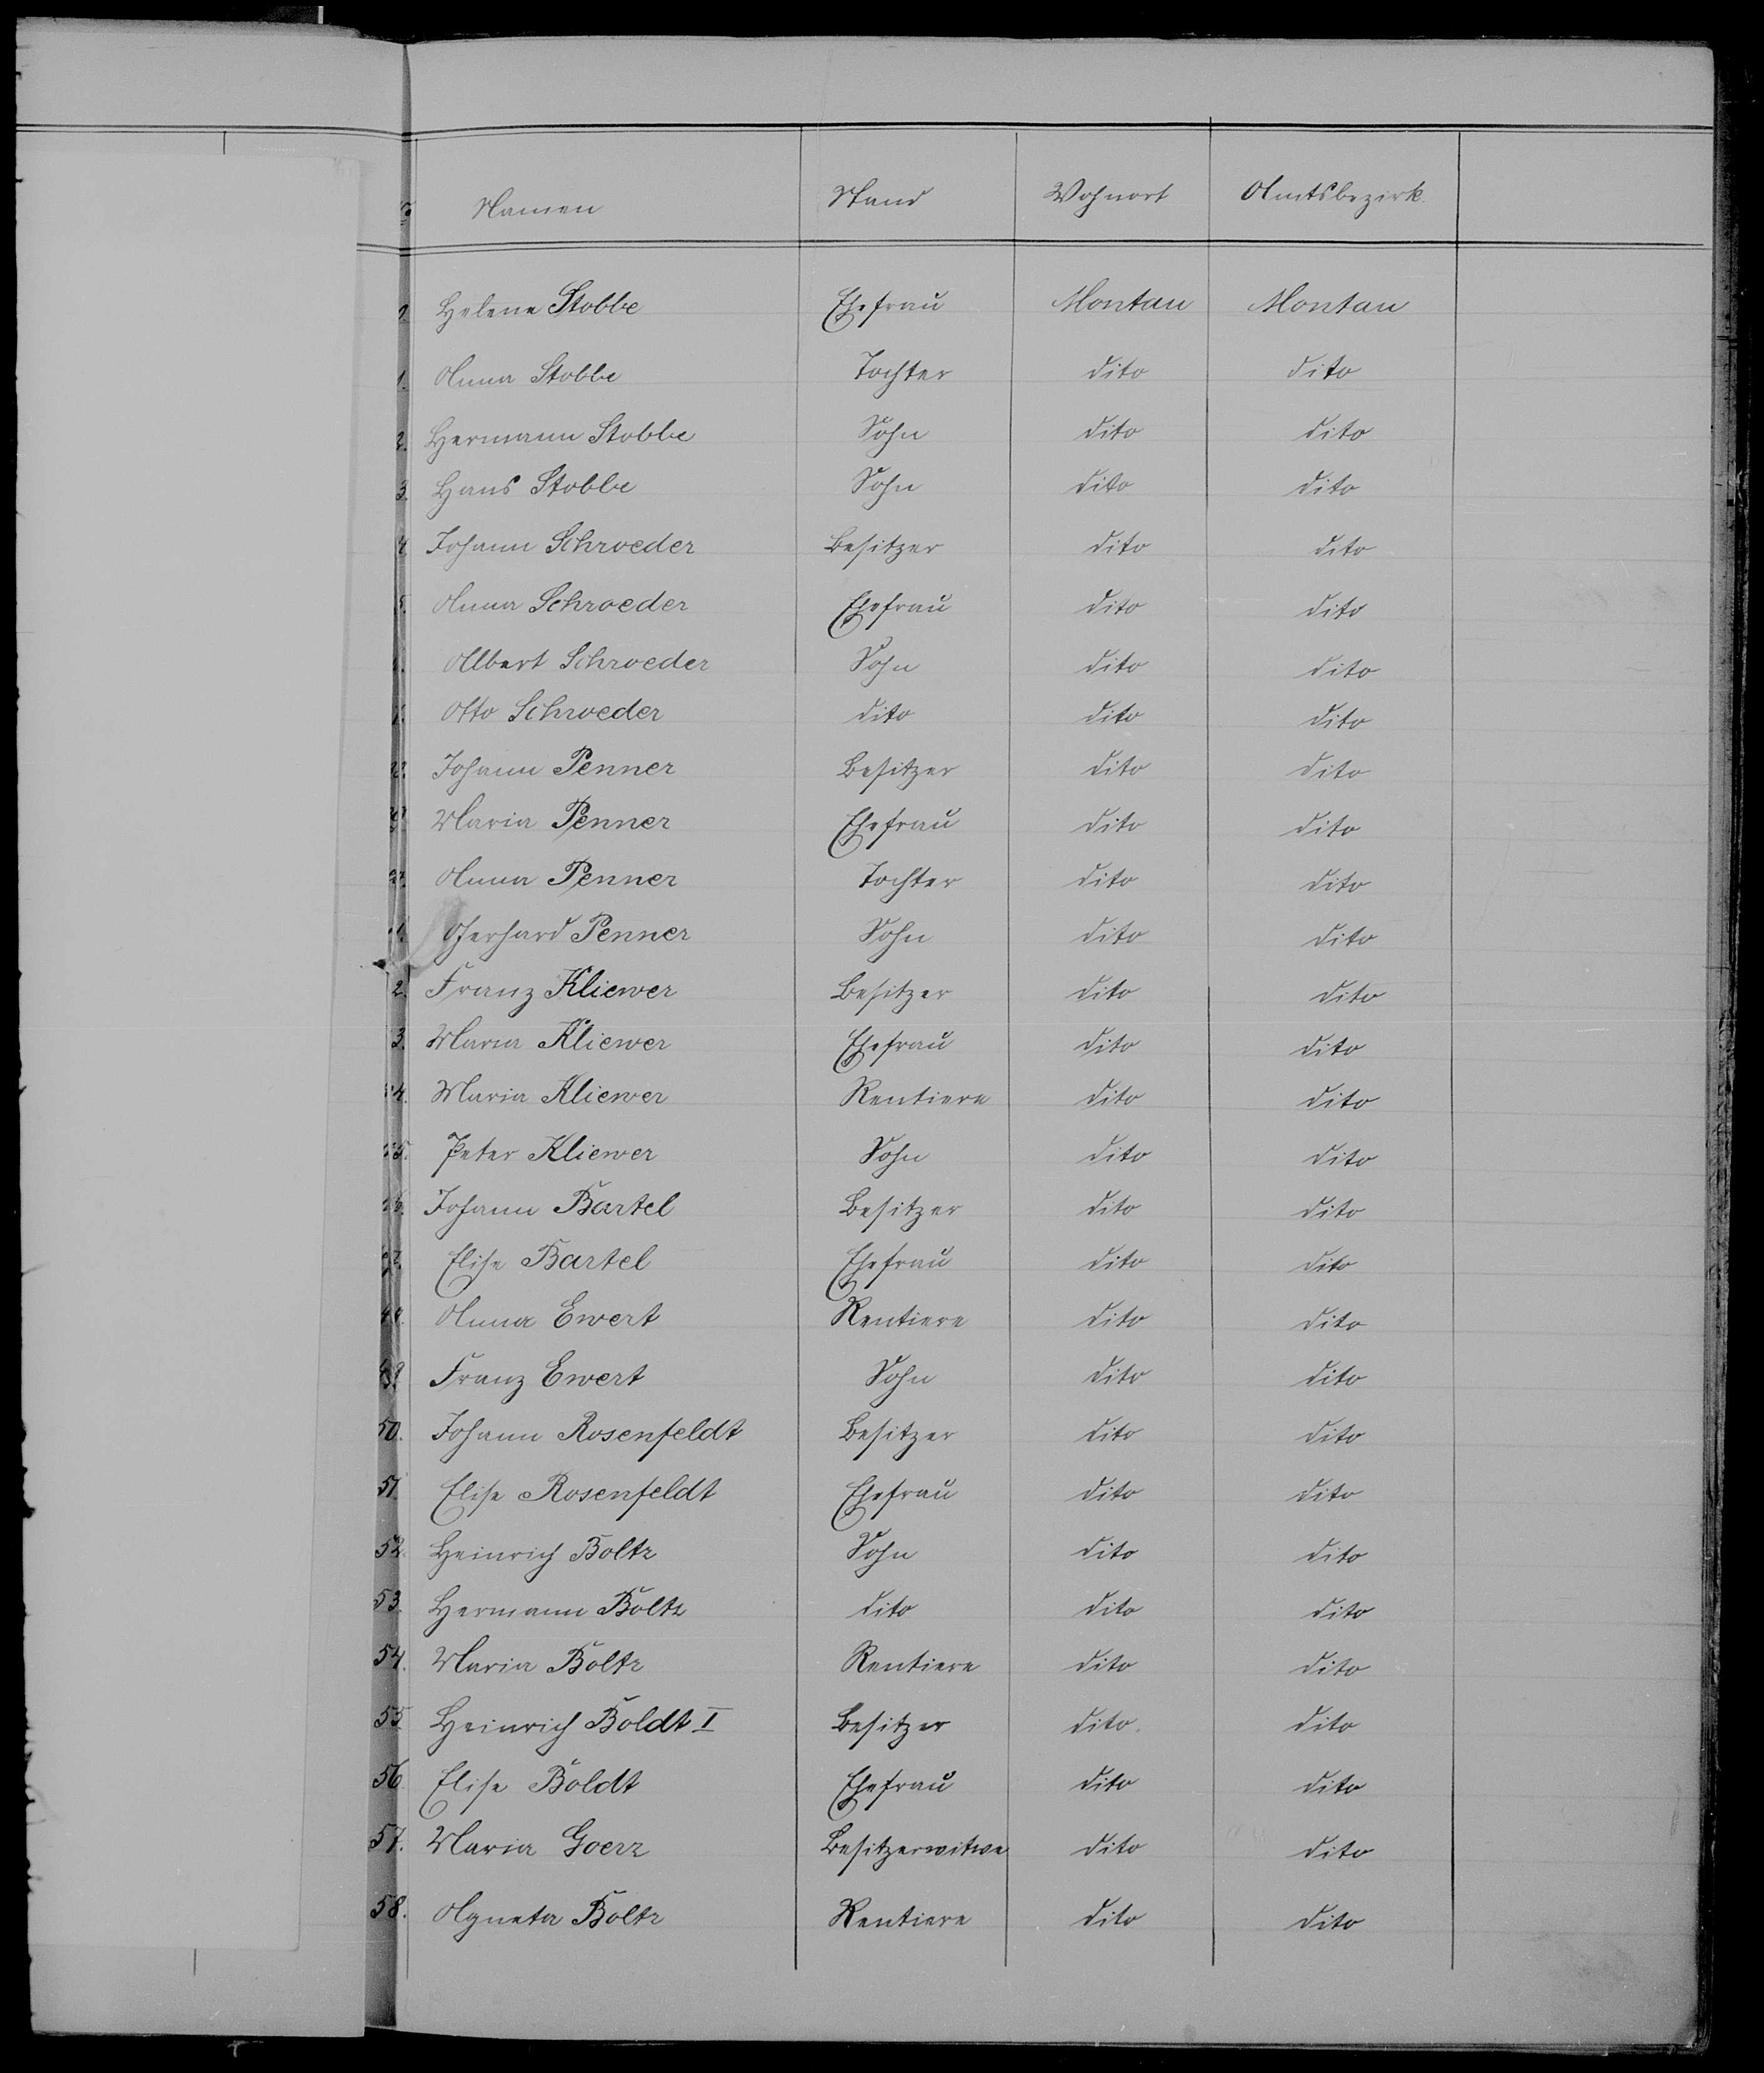 Namen Stand Wohnort Amtsbezirk.
Helene Stobbe Ehefrau Montau Montau
1. Anna Stobbe Tochter dito dito
2. Hermann Stobbe Sohn dito dito
3. Hans Stobbe Sohn dito dito
4. Johann Schroeder Besitzer dito dito
5. Anna Schroeder Ehefrau dito dito
Albert Schroeder Sohn dito dito
Otto Schroeder dito dito dito
Johann Penner Besitzer dito dito
Maria Penner Ehefrau dito dito
Anna Penner Tochter dito dito
1. Gerhard Penner Sohn dito dito
2. Franz Kliewer Besitzer dito dito
3. Maria Kliewer Ehefrau dito dito
4. Maria Kliewer Rentiere dito dito
5. Peter Kliewer Sohn dito dito
Johann Bartel Besitzer dito dito
Elise Bartel Ehefrau dito dito
Anna Ewert Rentiere dito dito
Franz Ewert Sohn dito dito
50. Johann Rosenfeldt Besitzer dito dito
51. Elise Rosenfeldt Ehefrau dito dito
52. Heinrich Boltz Sohn dito dito
53. Hermann Boltz dito dito dito
54. Maria Boltz Rentiere dito dito
55. Heinrich Boldt I Besitzer dito. dito
56. Elise Boldt Ehefrau dito dito
57. Maria Goerz Besitzerwitwe dito dito
58. Agneta Boltz Rentiere dito dito